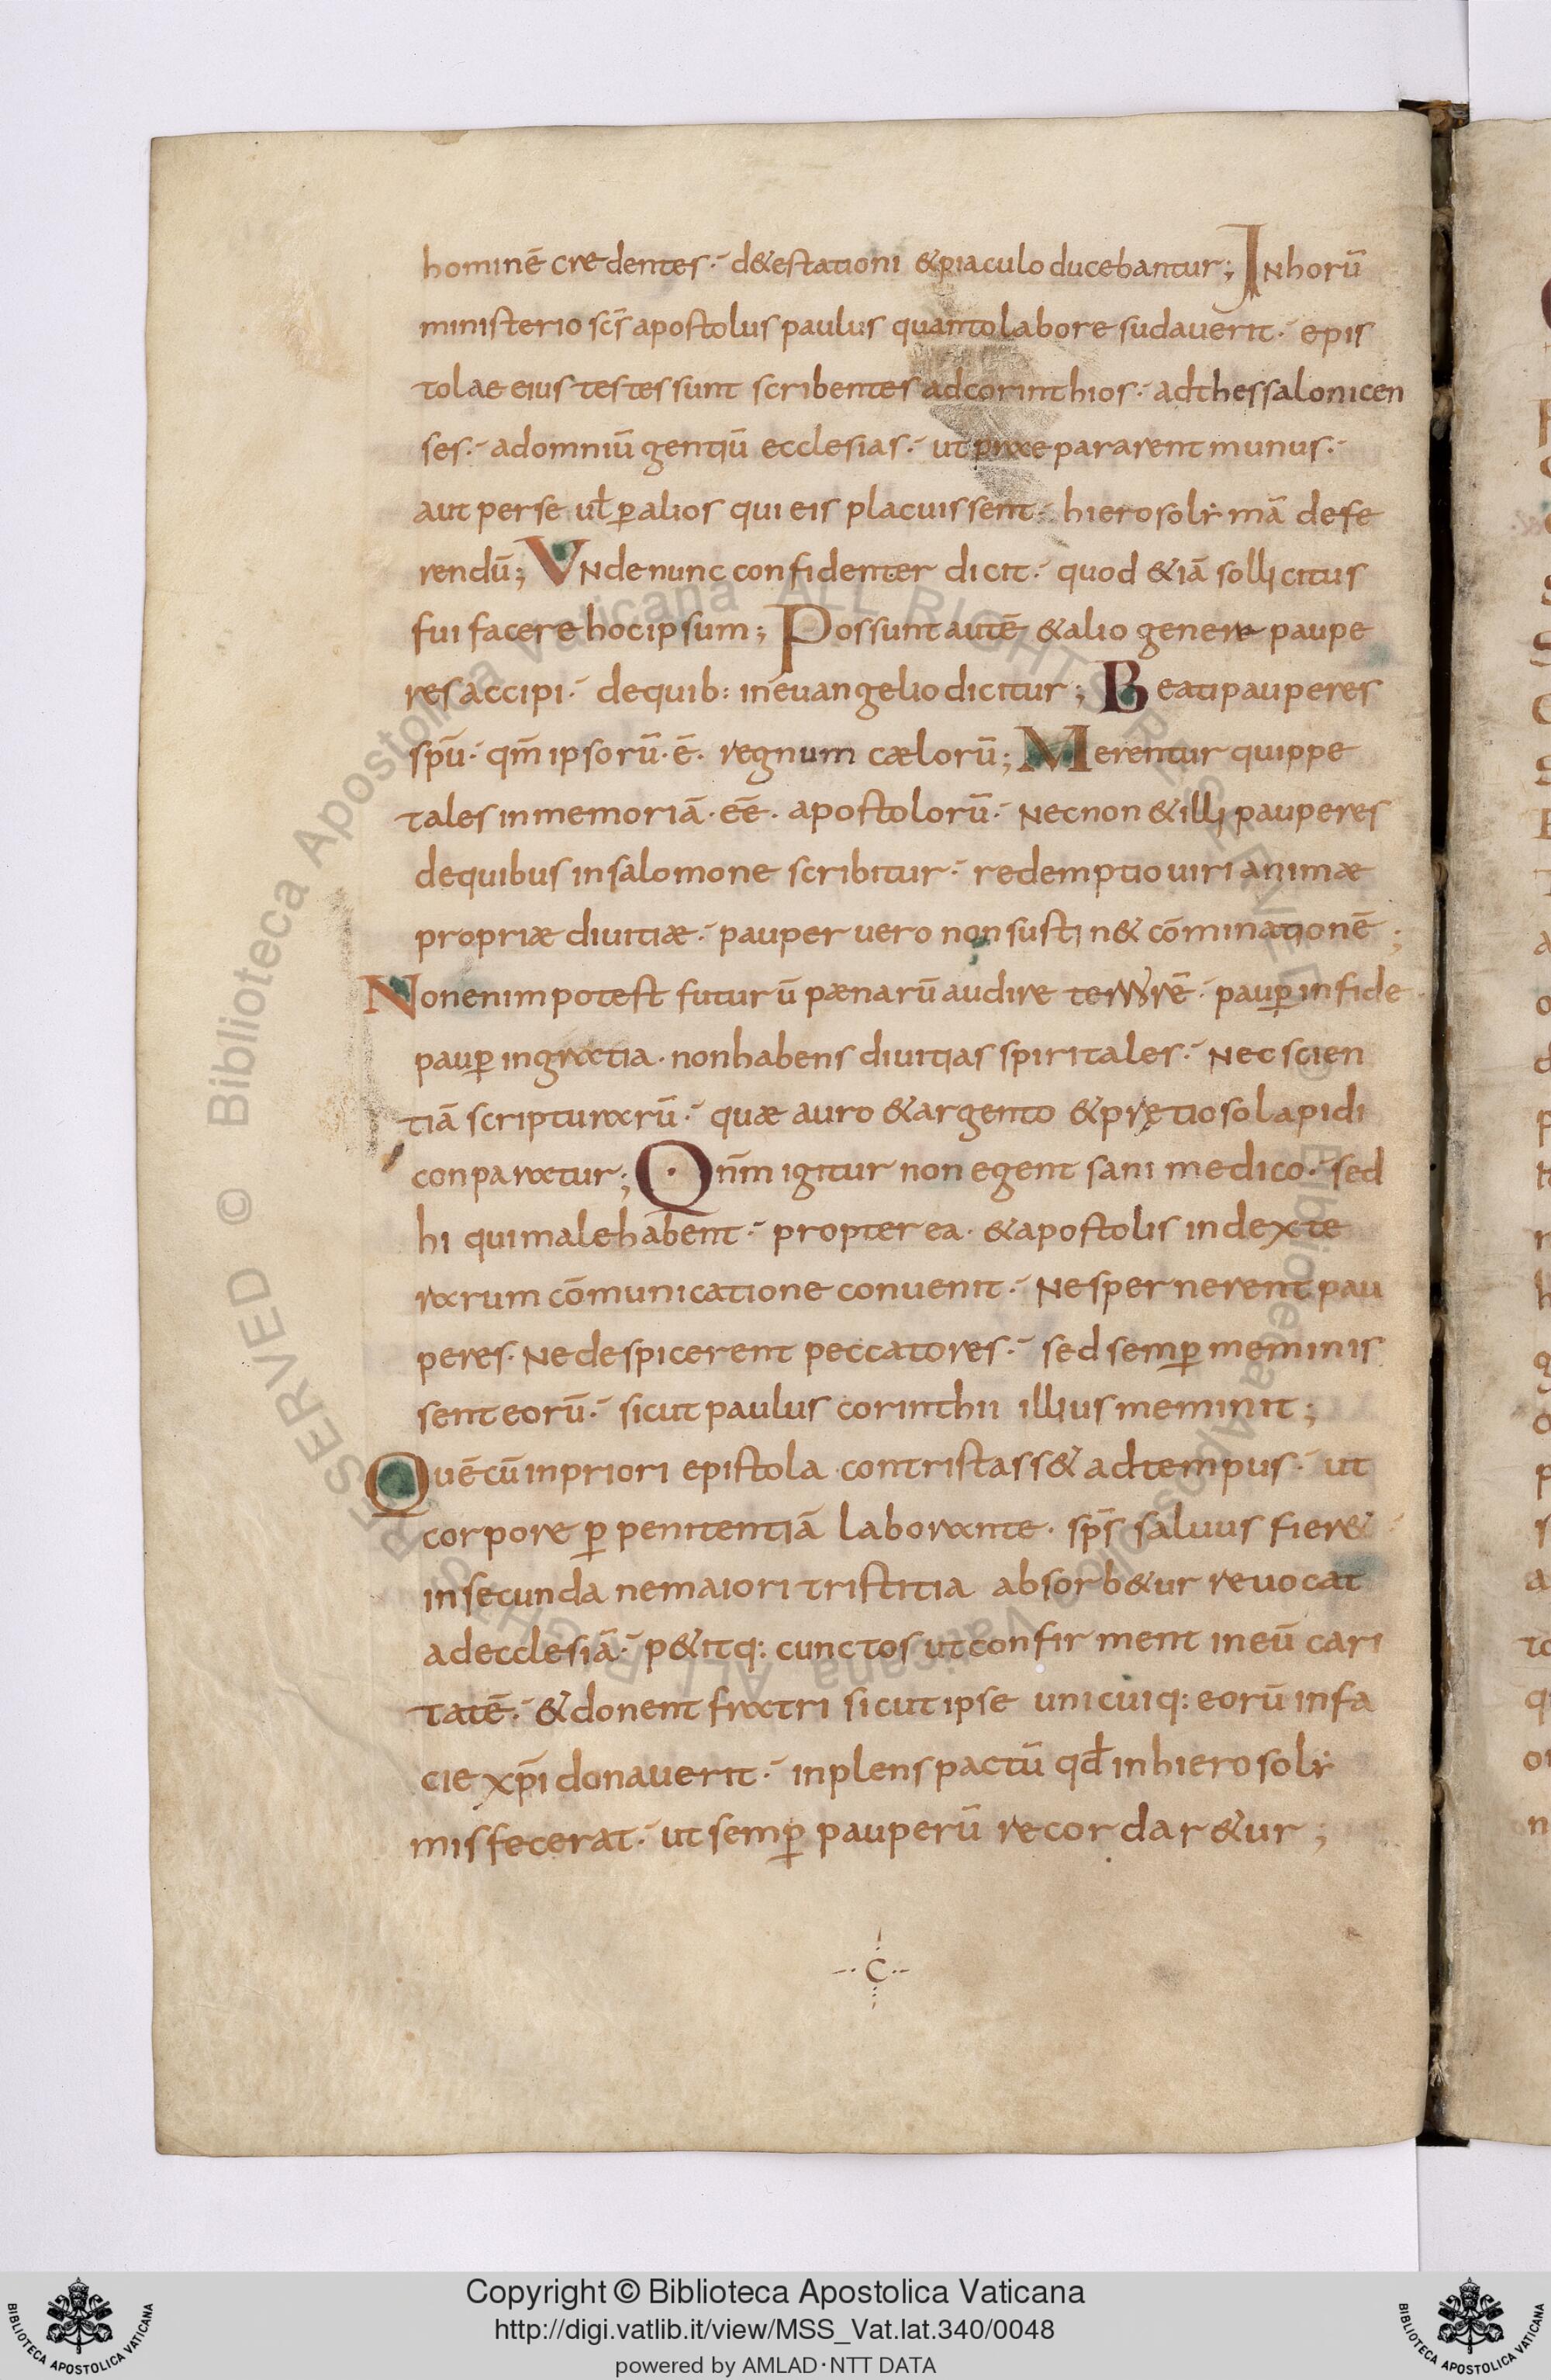 hominē credentes·- d&estationi &piaculo ducebantur; Inhorū
ministerio sc̄s apostolus paulus quanto labore sudauerit·- epis
tolae eius testes sunt scribentes adcorinthios· adthessalonicen
ses·- adomniū gentiū ecclesias·- ut praepararent munus·-
aut perse ul̄ ꝑalios qui eis placuissent·- hierosolẏmā defe
rendū; Vnde nunc confidenter dicit·- quod &iā sollicitus
fui facere hoc ipsum; Possunt autē &alio genere paupe
res accipi·- dequib: ineuangelio dicitur; Beati pauperes
spū· qm̄ ipsorū·ē· regnum cælorū; Merentur quippe
tales inmemoriā·eē· apostolorū·- Necnon &illi pauperes
dequibus insalomone scribitur·- redemptio uiri animæ
propriæ diuitiæ·- pauper uero non sustin& cōminationē;
Non enim potest futurū pænarū audire terrorē·- pauꝑ infide
pauꝑ ingratia· nonhabens diuitias spiritales·- Nec scien
tiā scripturarū·- quæ auro &argento &prętioso lapidi
conparatur; Qnm̄ igitur non egent sani medico·- sed
hi qui male habent·- propterea· &apostolis indexte
rarum cōmunicatione conuenit·- Nespernerent pau
peres· Nedespicerent peccatores·- sed semꝑ meminis
sent eorū·- sicut paulus corinthii illius meminit;
Quē cū inpriori epistola contristass& adtempus·- ut
corpore ꝑ penitentiā laborante· sps̄ saluus fier&
insecunda nemaiori tristitia absorb&ur reuocat
adecclesiā·- p&itq: cunctos ut confirment ineū cari
tatē·- &donent fratri sicut ipse unicuiq: eorū infa
cie xp̄i donauerit·- inplens pactū qd̄ inhierosolẏ
mis fecerat·- ut semꝑ pauperū recordar&ur;
C
© Biblioteca Apostolica Vaticana ALL RIGHTS RESERVED © Biblioteca Apostolica Vaticana ALL RIGHTS RESERVED
Copyright © Biblioteca Apostolica Vaticana
http://digi.vatlib.it/view/MSS_Vat.lat.340/0048
powered by AMLAD·NTT DATA
BIBLIOTECA APOSTOLICA VATICANA
BIBLIOTECA APOSTOLICA VATICANA